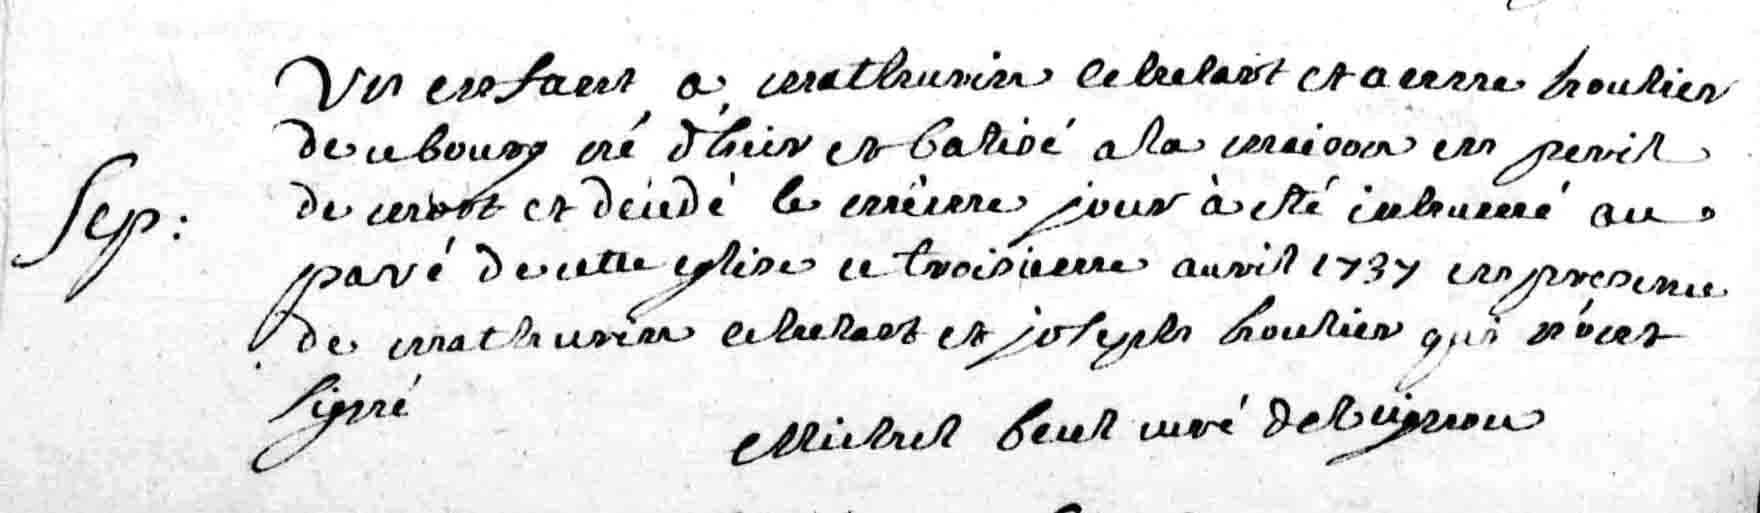 Un enfant a mathurin lehelart et a anne houlier
de ce bourg né d'hier et batisé a la maison en peril
Sep: de mort et décédé le même jour à esté inhumé au
pavé de cette eglise ce troisieme auvril 1737 en presence
de mathurin lehelart et joseph houlier qui n'ont
signé
Michel beul curé de Guignen